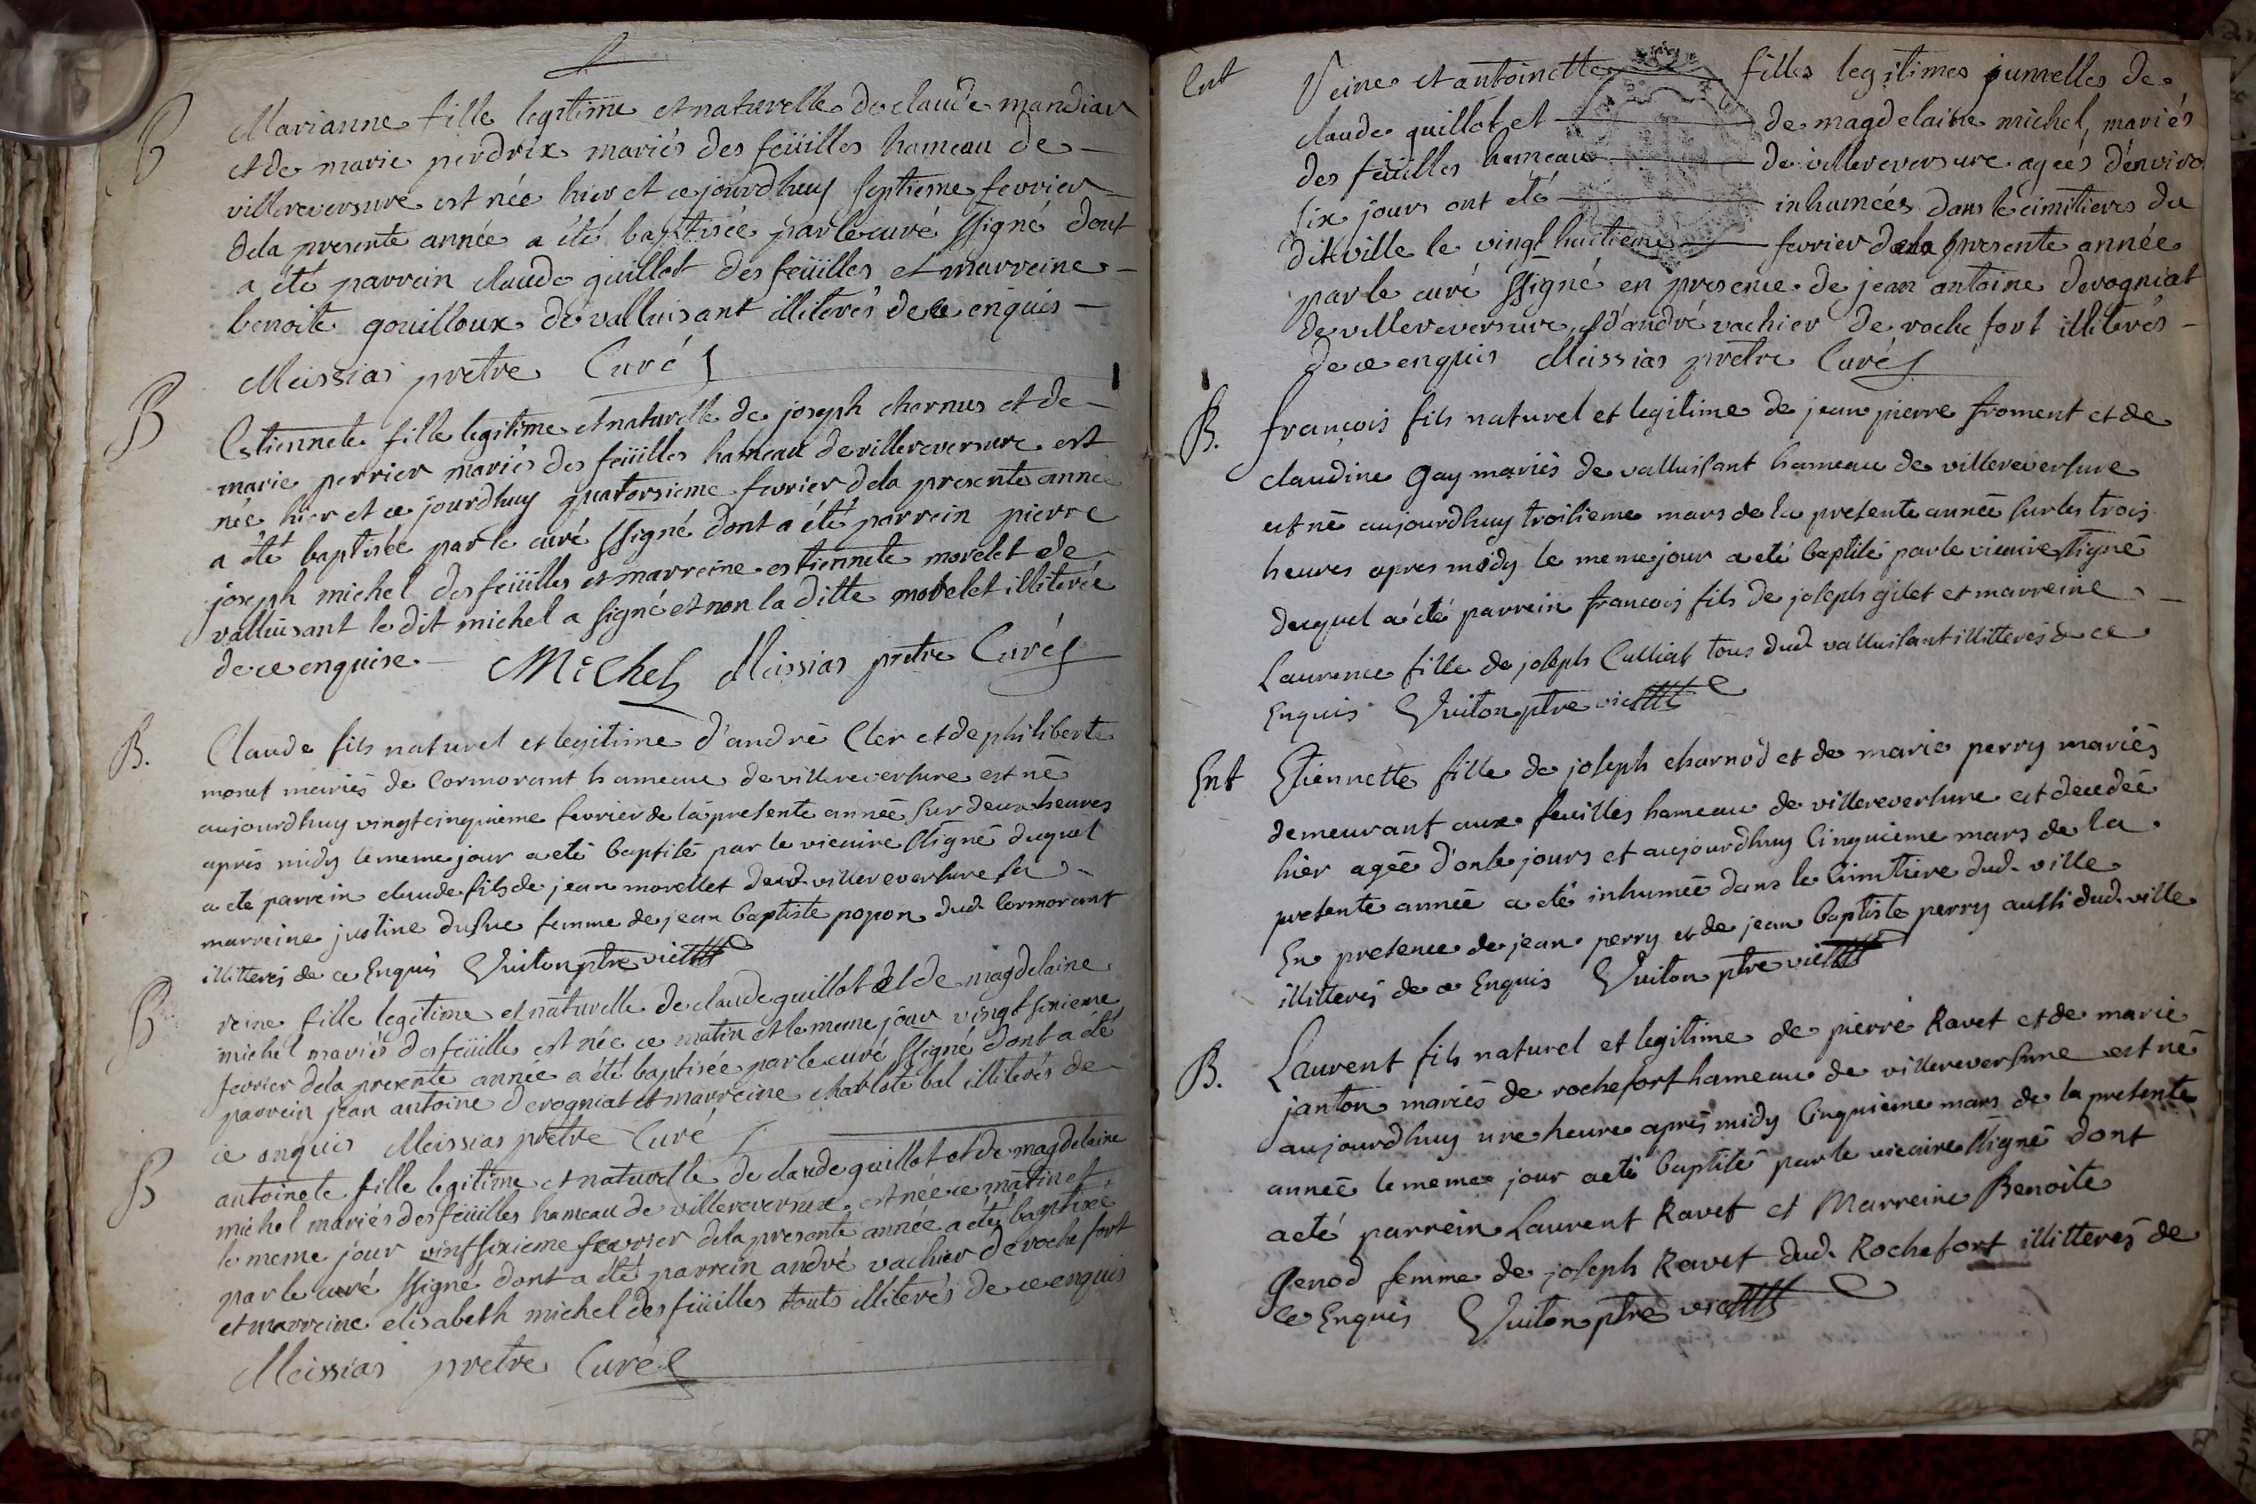 B
Marianne fille legitime et naturelle de claude mandiar
et de marie perdrix mariés des feüilles hameau de
villereversure est née hier et ce jourdhuy septieme fevrier
dela presente année a été baptisée par le curé ssigné dont
a été parrein claude guillot des feüilles et marreine
benoite gouilloux de valluisant illiterés de ce enquis
Meissias pretre Curé
B
Estiennete fille legitime et naturelle de joseph charnus et de
marie perrier mariés des feüilles hameau de villereversure est
née hier et ce jourdhuy quatorsieme fevrier dela presente année
a été baptisée par le curé ssigné dont a été parrein pierre
joseph michel des feüilles et marreine estiennete morelet de
valluisant le dit michel a signé et non la ditte morelet illiterée
de ce enquise Michel Meissias pretre Curé
B.
Claude fils naturel et legitime d'andré Cler et de philiberte
monet mariés de Cormorant hameau de villereversure est né
aujourdhuy vingtcinquieme fevrier de la presente année sur deux heures
après midy le meme jour a eté baptisé par le vicaire ssigné duquel
a eté parrein claude fils de jean morellet dud. villereversure sa
marreine justine dusue femme de jean baptiste popon dud. Cormorant
illitterés de ce Enquis Vuiton ptre vic
B
reine fille legitime et naturelle de claude guillot et de magdelaine
michel mariés des feüille est née ce matin et le meme jour vingt sixieme
fevrier dela presente année a été baptisée par le curé ssigné dont a été
parrein jean antoine derogniat et marreine charlote bal illiterés de
ce enquis Meissias pretre Curé
B
antoinete fille legitime et naturelle de claude guillot et de magdelaine
michel mariés des feüilles hameau de villereversure est née ce matin et
le meme jour vintsixieme fevrier dela presente année a été baptisée
par le curé ssigné dont a été parrein andré vachier de rochefort
et marreine elisabeth michel des feüilles touts illiterés de ce enquis
Meissias pretre Curé
Ent
Reine et antoinette filles legitimes jumelles de
claude guillot et de magdelaine michel, mariés
des feüilles hameau de villereversure agées d'enviro
six jours ont été inhumées dans le cimitiere du
dit ville le vingt huitieme fevrier dela presente année
par le curé ssigné en presence de jean antoine derogniat
de villereversure et d'andré vachier de roche fort illiterés
de ce enquis Meissias pretre Curé
B.
françois fils naturel et legitime de jean pierre froment et de
claudine Gay mariés de valluisant hameau de villereversure
est né aujourdhuy troisieme mars de la presente année sur les trois
heures apres midy le meme jour a eté baptisé par le vicaire ssigné
duquel a été parrein francois fils de joseph gilet et marreine
Laurence fille de joseph Culliat tous dud. valluisant illitterés de ce
Enquis Vuiton ptre vic
Ent
Etiennette fille de joseph charnod et de marie perry mariés
demeurant aux feuilles hameau de villereversure est decedée
hier agée d'onse jours et aujourdhuy Cinquieme mars de la
presente année a eté inhumée dans le Cimitiere dud. ville
En presence de jean perry et de jean baptiste perry aussi dud. ville
illitterés de ce Enquis Vuiton ptre vic
B.
Laurent fils naturel et legitime de pierre Ravet et de marie
janton mariés de rochefort hameau de villereversure est né
aujourdhuy une heure après midy Cinquieme mars de la presente
année le meme jour a eté baptisé par le vicaire ssigné dont
a eté parrein Laurent Ravet et Marreine Benoite
Genod femme de joseph Ravet dud. Rochefort illitterés de
Ce Enquis Vuiton ptre vic